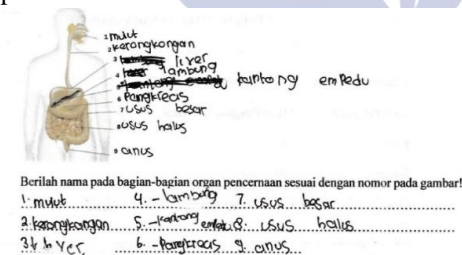 1 mulut
2 kerongkongan
3 liver
4 lambung
5 kantong empedu
6 Pangkreas
7 usus besar
8 usus halus
9 anus
Berilah nama pada bagian-bagian organ pencernaan sesuai dengan nomor pada gambar!
1. mulut 4. - lambung 7. usus besar
2. kerongkongan 5. - kantong empedu 8. usus halus
3. liver 6. - Pangkreas 9. anus